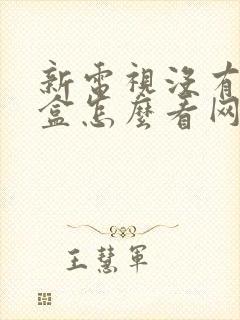 新電視沒有
盒怎麼看网
王慧軍